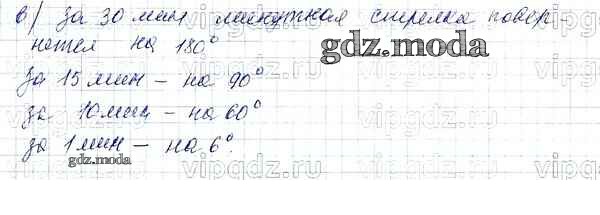 в) За 30 мин минутная стрелка повер
нется на 180°
За 15 мин – на 90°
за 10 мин – на 60°
за 1 мин – на 6°.
gdz.moda
gdz.moda
vipgdz.ru